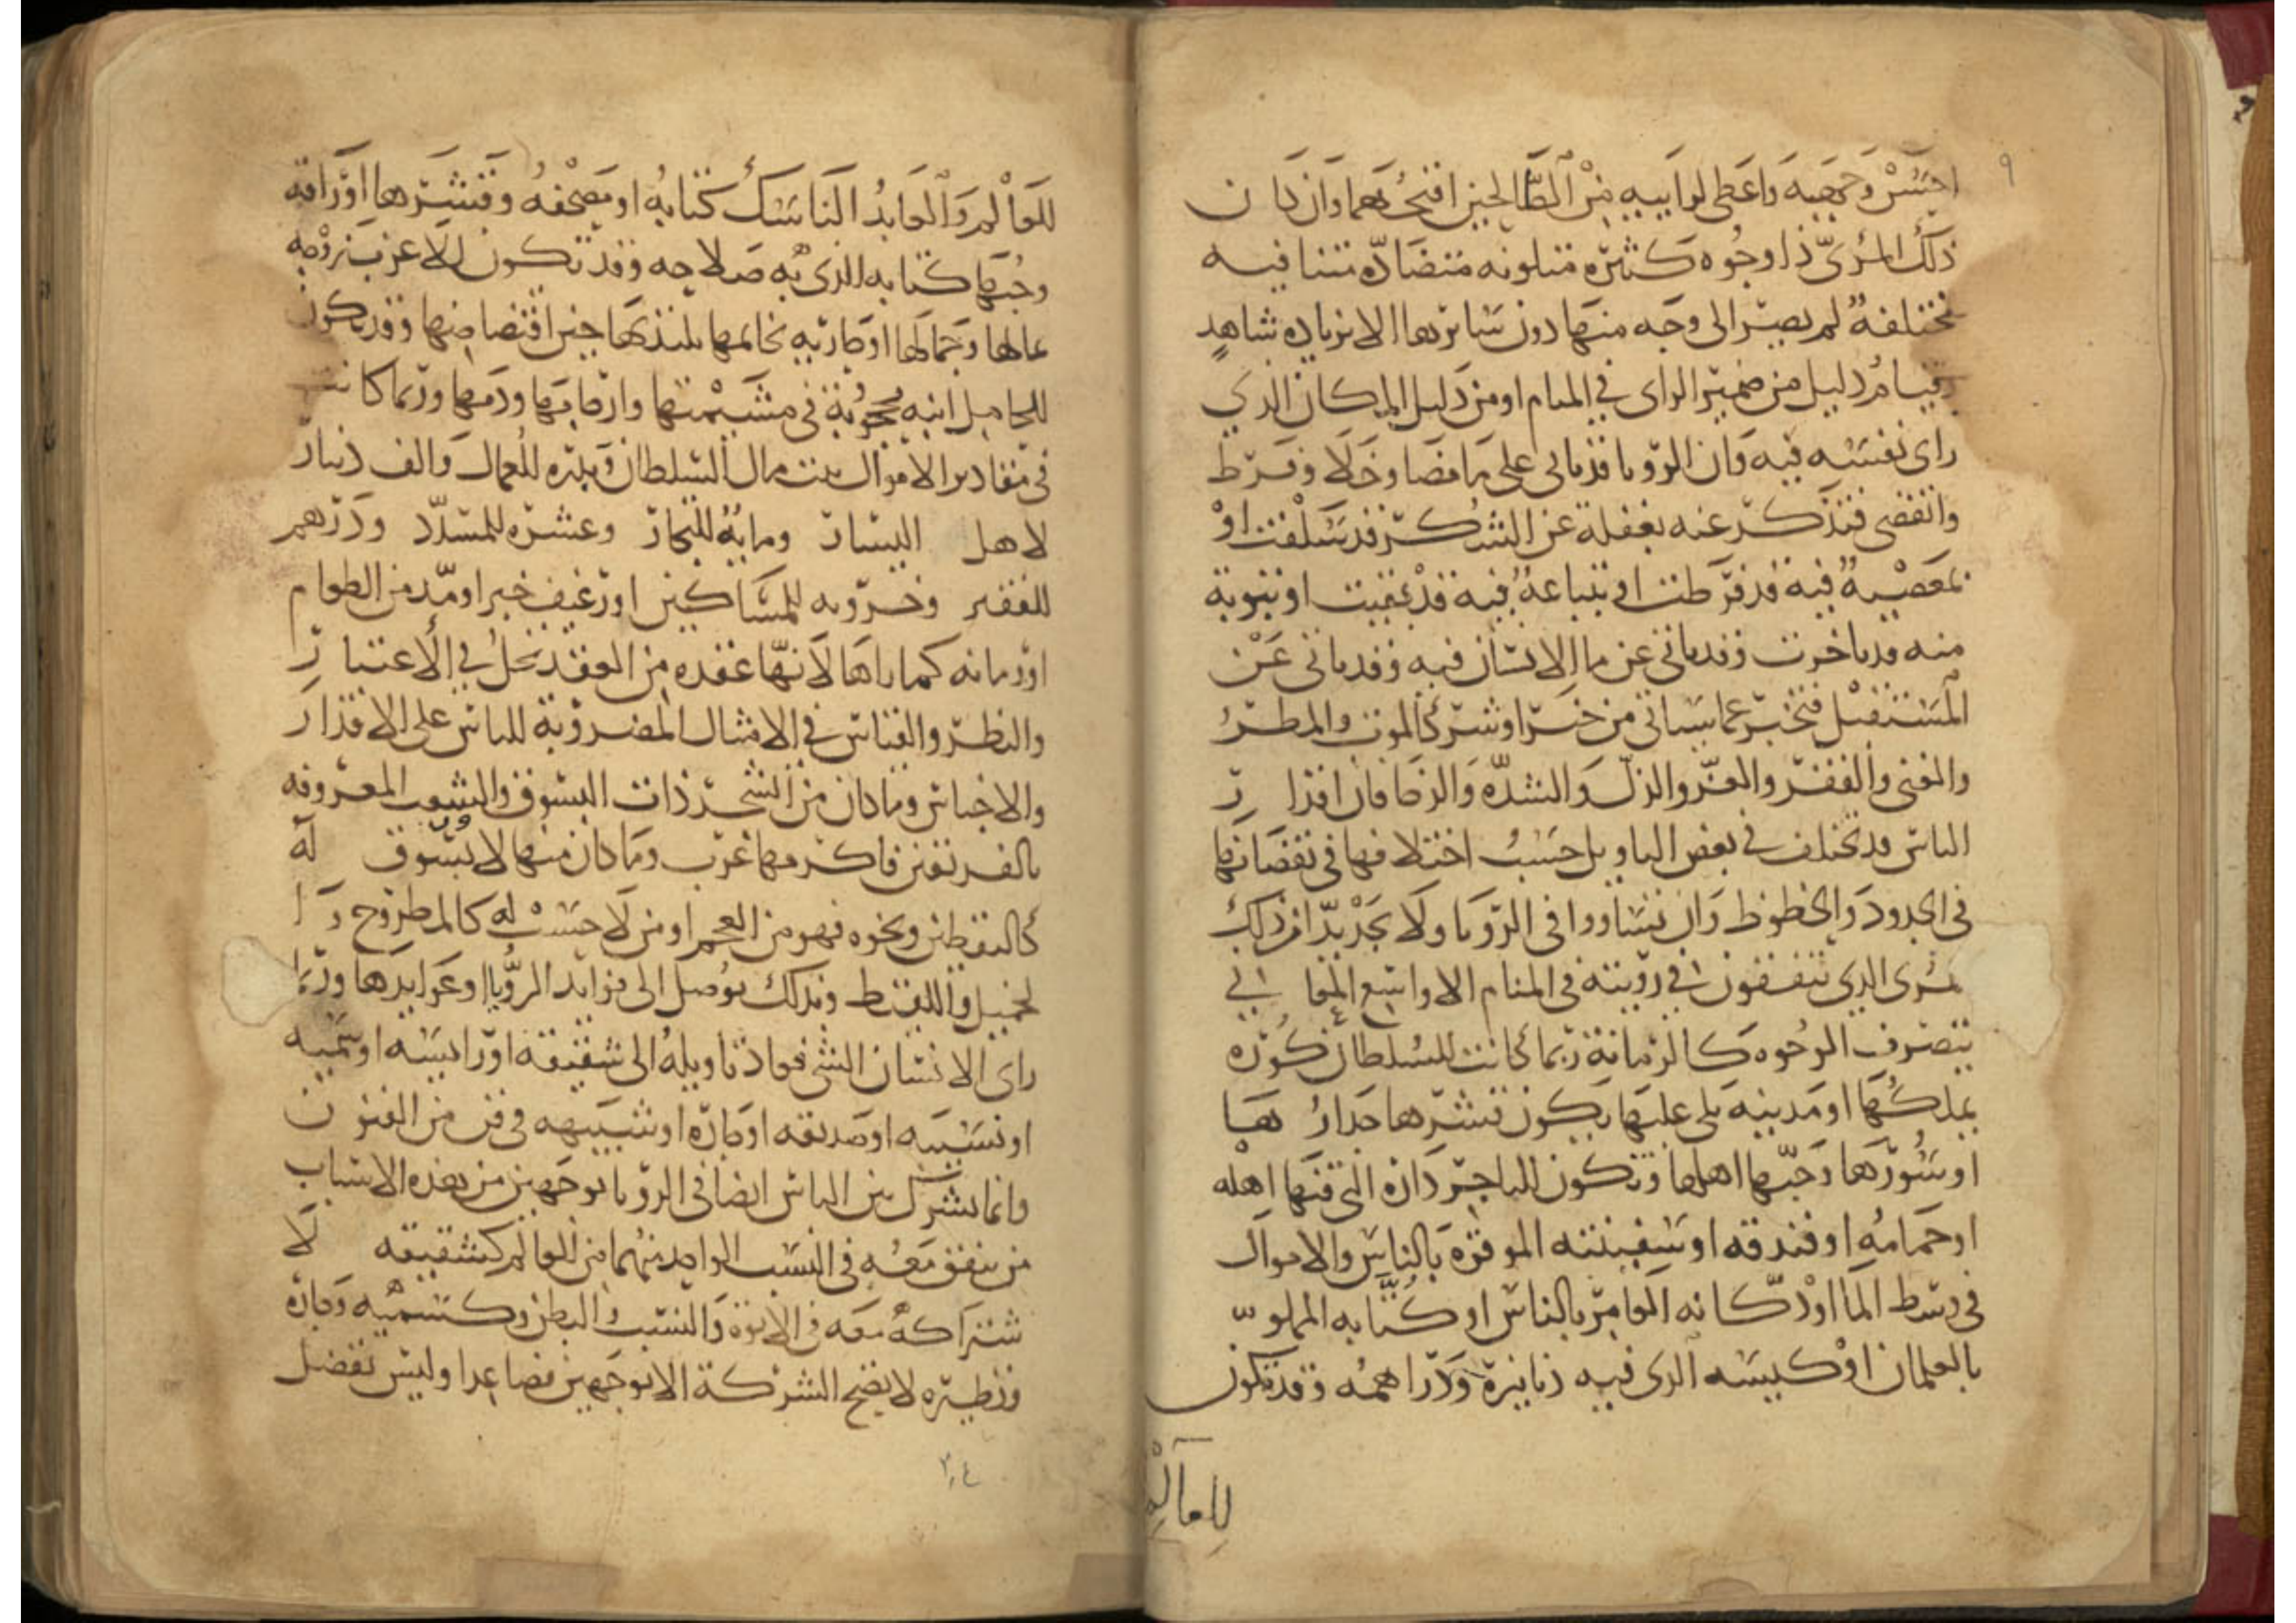 ٩
احسن وجهيه واعطى لرائيه من الصالحين اقبحهما وان كان
ذلك المرئ ذا وجوه كثيره متلونه متضاده متنافيه
مختلفة لم يصير الى وجه منها دون سائرها الا بزياده شاهد
وقيام دليل من ضمير الراى في المنام او من دليل المكان الذي
راى نفسه فيه وان الرؤيا قد تاتى على ما مضا وخلا وفرط
وانقضى فتذكر عنه بغفلة عن الشكر قد سلفت او
بمعصية فيه قد فرطت او بتباعة فيه قد بقيت او بتوبة
منه قد تاخرت وقد تاتي عن ما الانسان فيه وقد تاتى عن
المستقبل فتخبر عما سياتى من خير او شر كالموت والمطر
والغنى والفقر والعز والذل والشده والرخا فان اقدار
الناس قد تختلف في بعض التاويل حسب اختلافها في نقصانها
في الجدود والحظوظ وان تساووا في الرؤيا ولا نجد بدا من ذلك
المرى الذي يتفقون في رؤيته في المنام الا واسع المعاني
يتصرف الوجوه كالرمانة ربما كانت للسلطان كوره
يملكها او مدينه يلى عليها يكون قشرها جدارها
او سورها وحبها اهلها وتكون للتاجر داره التي فيها اهله
او حمامه او فندقه او سفينته الموقره بالناس والاموال
في وسط الما او دكانه العامر بالناس او كتابه المملو
بالغلمان او كيسه الذى فيه دنانيره ودراهمه وقد تكون
للعالم
للعالم والعابد الناسك كتابه او مصحفه وقشرها اوراقه
وحبها كتابه الذى به صلاحه وقد تكون للاعزب زوجه
بمالها وجمالها او جاريه بخاتمها يلتذ بها حين اقتضاضها وقد تكون
للحامل ابنه محجوبة في مشيمتها وارحامها ودمها وربما كانت
في مقادير الاموال بيت مال السلطان وبدره للعمال والف دينار
لاهل اليسار ومايه للتجار وعشره للمتسلط ودرهم
للفقير وخروبه للمساكين او رغيف خبز او مد من الطعام
او رمانه كما راها لانها عقده من العقد تحل في الاعتبار
والنظر والقياس في الامثال المضروبة للناس على الاقدار
والاجناس وما كان من الشجر ذات السوق والشعب المعروفه
فاكرمها عرب وما كان منها لا سوق له
كاليقطين ونحوه فهو من العجم او من لا حسب له كالمطروح و
الحميل واللقيط وبذلك توصل الى فوايد الرؤيا وعوايدها وربما
راى الانسان الشى فعاد تاويله الى شقيقه او رئيسه او سميه
او نسيبه او صديقه او جاره او شبيهه في فن من الفنون
وانما يشرك بين الناس ايضا في الرؤيا بوجهين من هذه الاسباب
من يتفق معه في النسب الواحد منهما من العالم كشقيقه لا
شتراكه معه في الابوة والنسب والبطن وكسميه وجاره
ونظيره لا يصح الشركة الا بوجهين فصاعدا وليس تفضل
٢٠٤